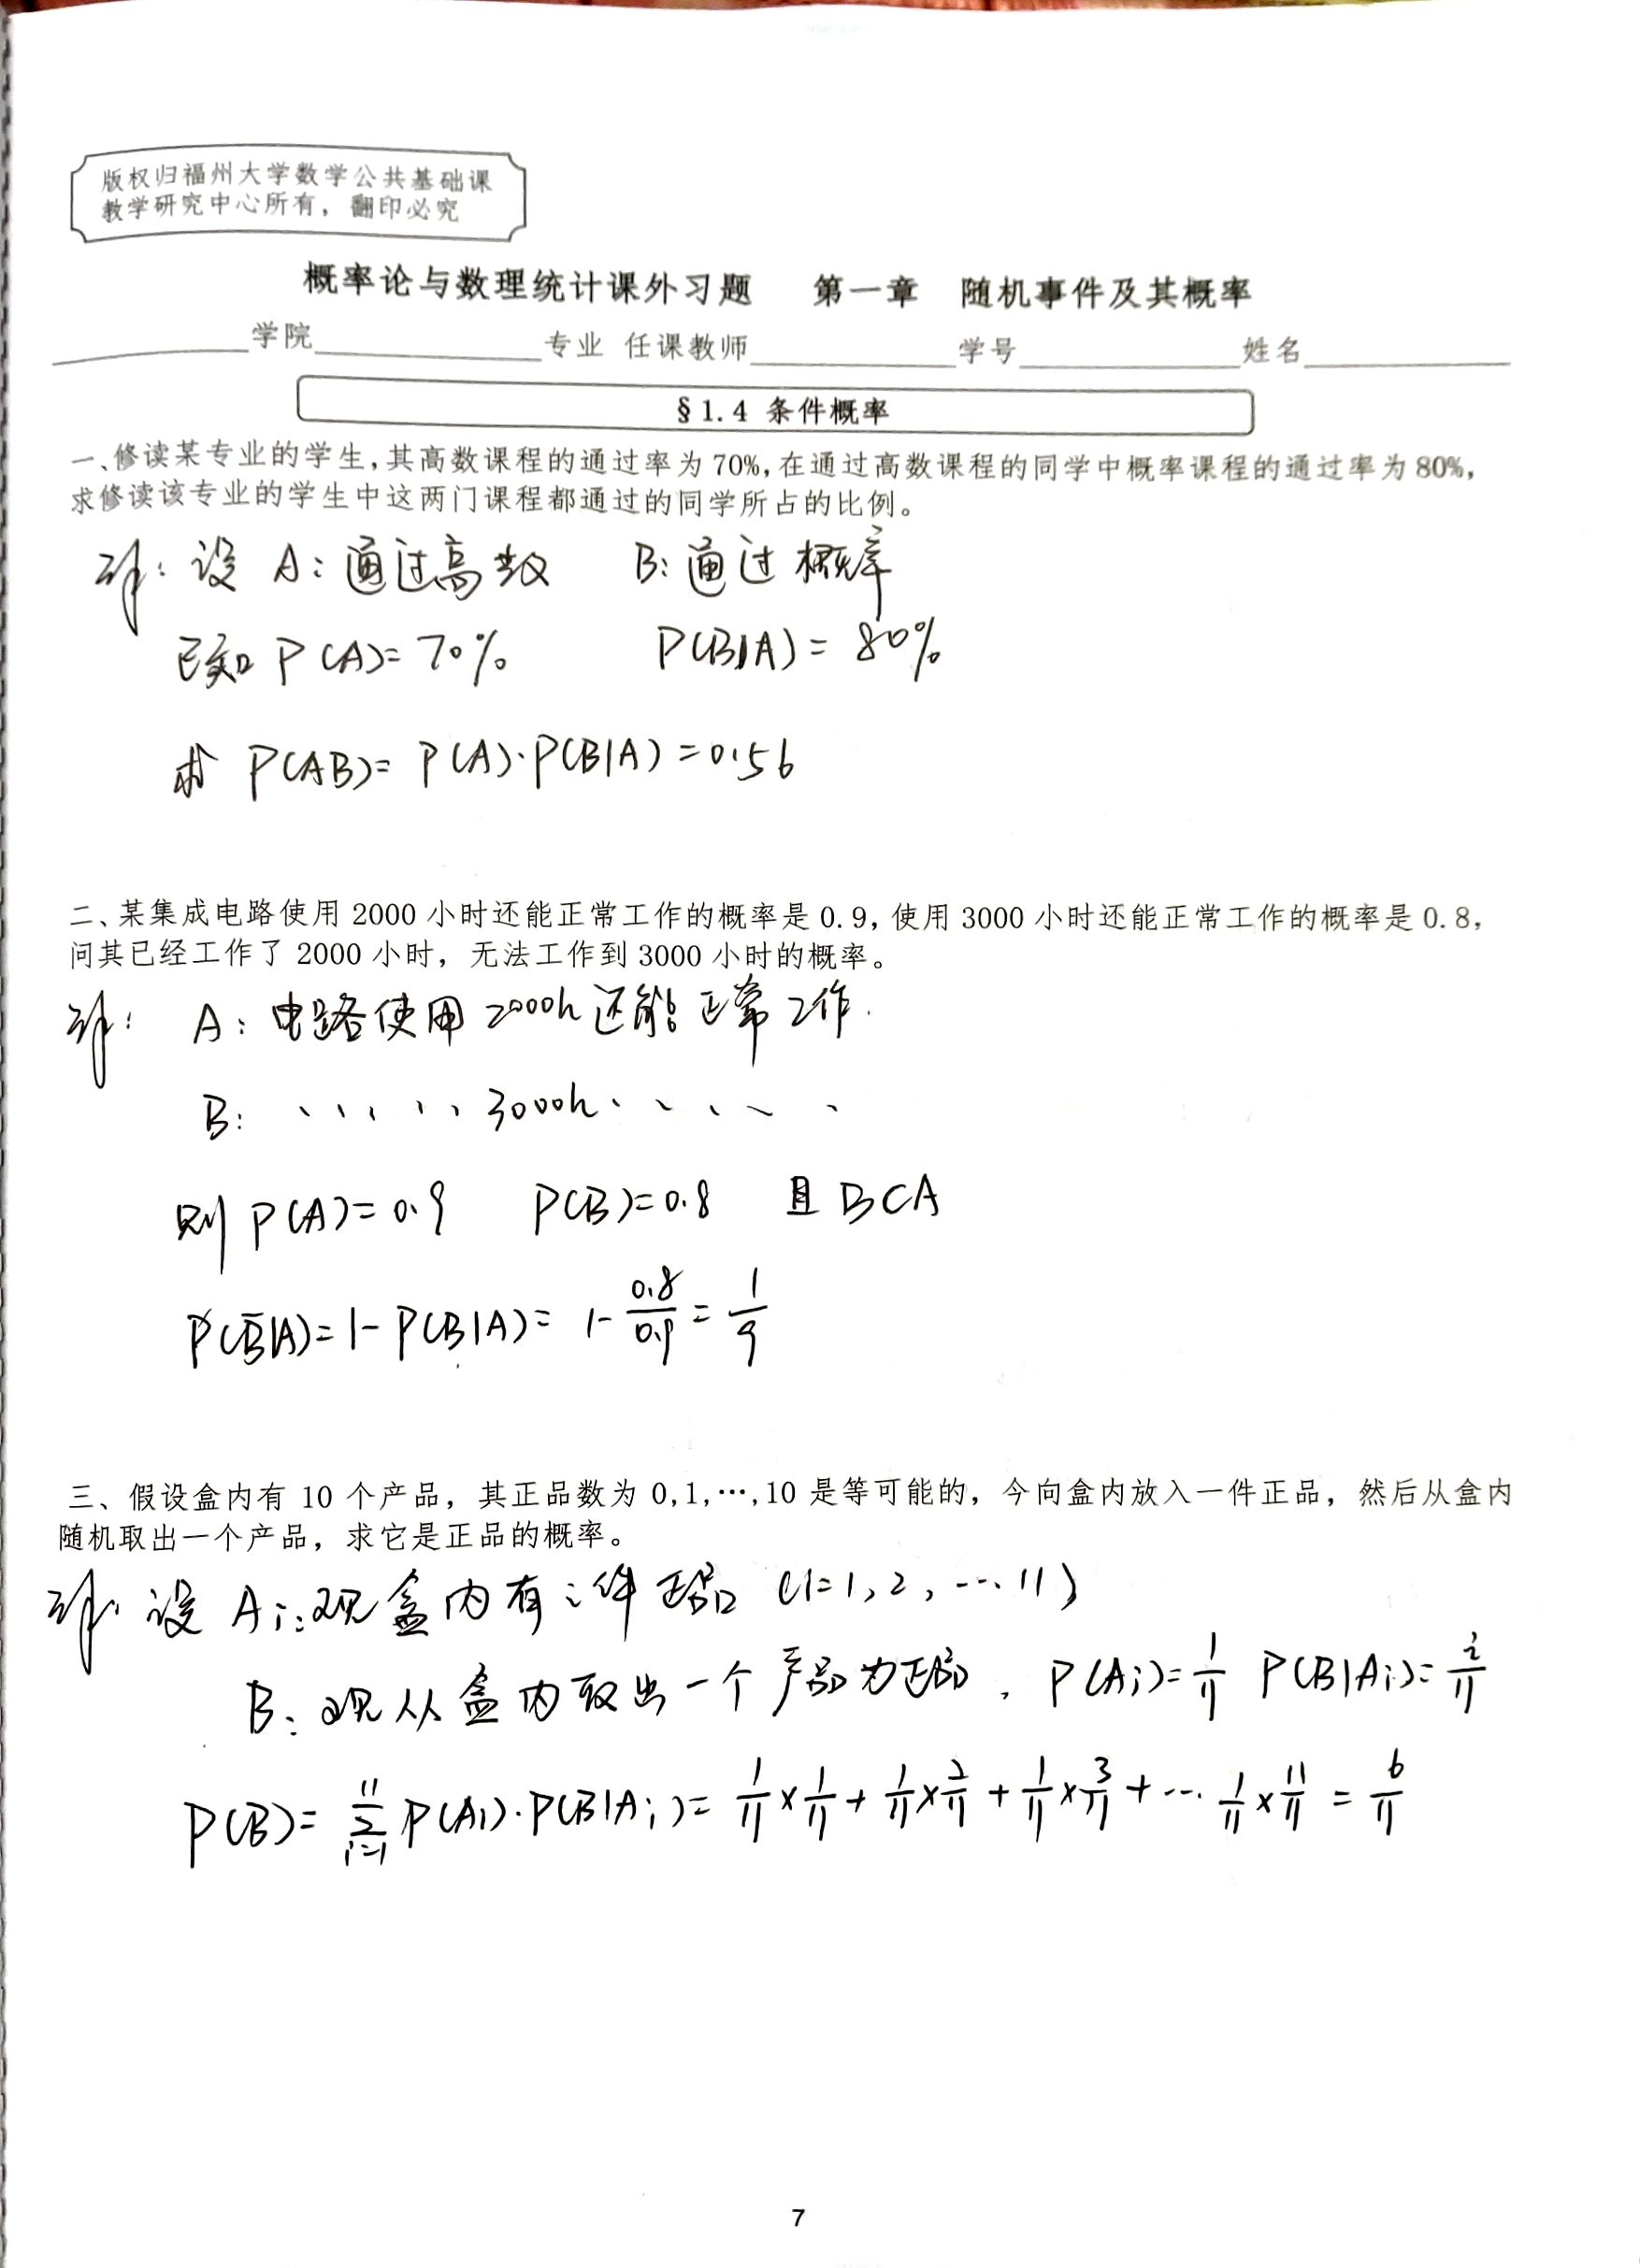 版权归福州大学数学公共基础课
教学研究中心所有，翻印必究
概率论与数理统计课外习题 第一章 随机事件及其概率
学院 专业 任课教师 学号 姓名
§1.4 条件概率
一、修读某专业的学生,其高数课程的通过率为70%,在通过高数课程的同学中概率课程的通过率为80%,
求修读该专业的学生中这两门课程都通过的同学所占的比例。
解: 设 A: 通过高数 B: 通过概率
已知 P(A)=70% P(B|A)=80%
求 P(AB)= P(A)·P(B|A)=0.56
二、某集成电路使用 2000 小时还能正常工作的概率是 0.9, 使用 3000 小时还能正常工作的概率是 0.8,
问其已经工作了 2000 小时，无法工作到 3000 小时的概率。
解: A: 电路使用2000h还能正常工作.
B: 、、、、、、3000h、、、、、
则 P(A)=0.9 P(B)=0.8 且 B⊂A
P(B̄|A)=1-P(B|A)= 1-0.8/0.9=1/9
三、假设盒内有 10 个产品，其正品数为 0,1,…,10 是等可能的，今向盒内放入一件正品，然后从盒内
随机取出一个产品，求它是正品的概率。
解: 设 Ai:现盒内有i件正品 (i=1,2,…11)
B: 现从盒内取出一个产品为正品, P(Ai)=1/11 P(B|Ai)=i/11
P(B)= ∑_{i=1}^{11} P(Ai)·P(B|Ai)= 1/11×1/11+1/11×2/11+1/11×3/11+…1/11×11/11=6/11
7